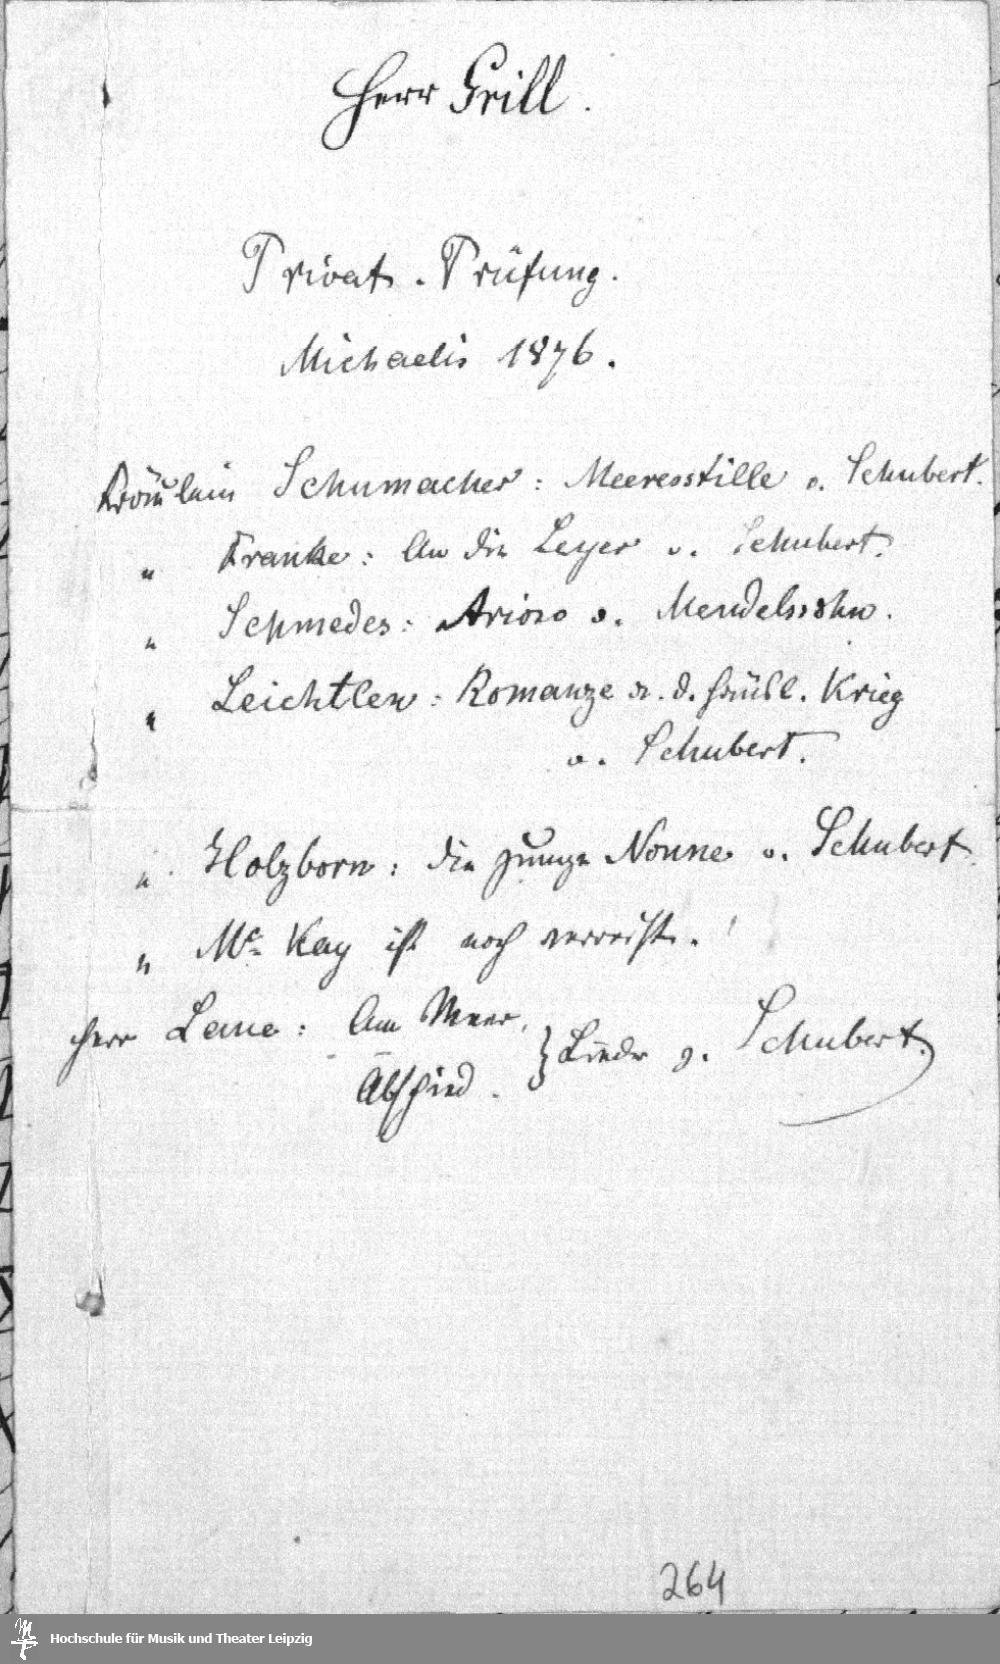 Herr Grill.
Privat-Prüfung.
Michaelis 1876.
Fräulein Schumacher: Meeresstille v. Schubert.
" Franke: An die Leyer v. Schubert.
" Schmedes: Arioso v. Mendelssohn.
" Leichtlen: Romanze a. d. häusl. Krieg
v. Schubert.
" Holzborn: die junge Nonne v. Schubert
" Mc Kay ist noch verreist.
Herr Lane: Am Meer, } Lieder v. Schubert.
Abschied.
264
Hochschule für Musik und Theater Leipzig